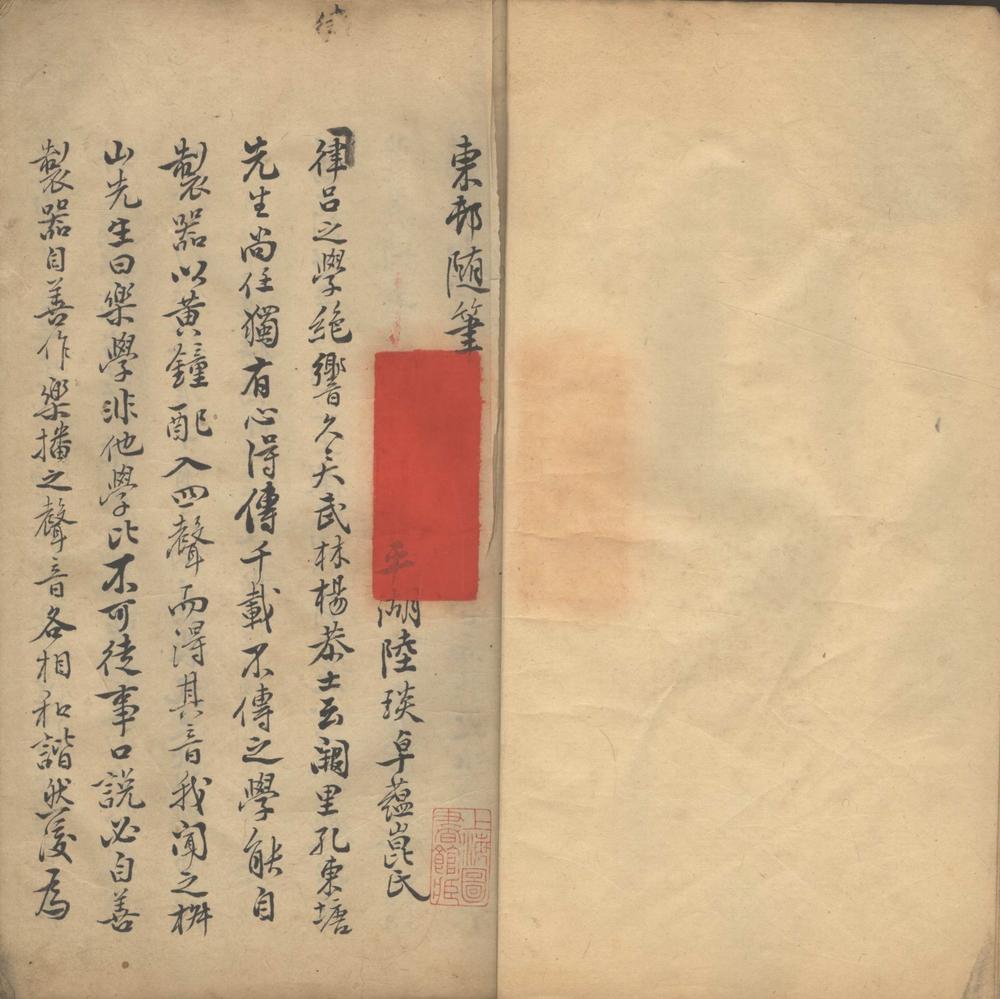 東邨随筆
平湖陸琰卓蘊崑氏
律吕之學絶響久矣武林楊恭士云闕里孔東塘
先生尚任獨有心得傳千載不傳之學能自
製器以黄鐘配入四聲而得其音我聞之桝
山先生曰樂學非他學比不可徒事口説必自善
製器自善作樂播之聲音各相和諧然後為
上海圖
書館藏